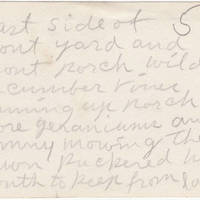 ast side of 5
ont yard and
ont porch wild
cumber vines
nning up porch
ore geraniums an
mmy mowing the
wn puckered u
outh to keep from la